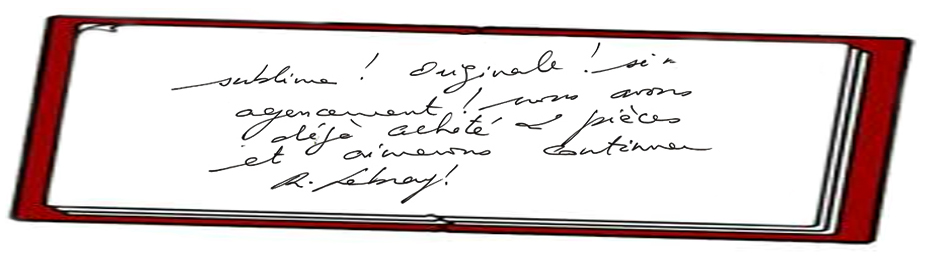 sublime ! Originale !
agencement ! nous avons
déjà acheté 2 pièces
et aimerons continuer
R. Lebray !